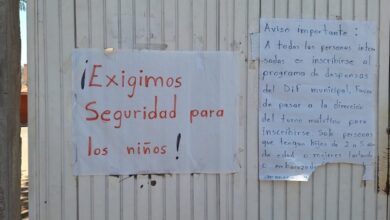 ¡Exigimos
Seguridad para
los niños!
Aviso importante:
A todas las personas intere
sadas en inscribirse al
programa de despensas
del DIF municipal. Favor
de pasar a la dirección
del turno matutino para
Inscribirse Solo personas
que tengan hijos de 2 a 5 años
de edad o mujeres